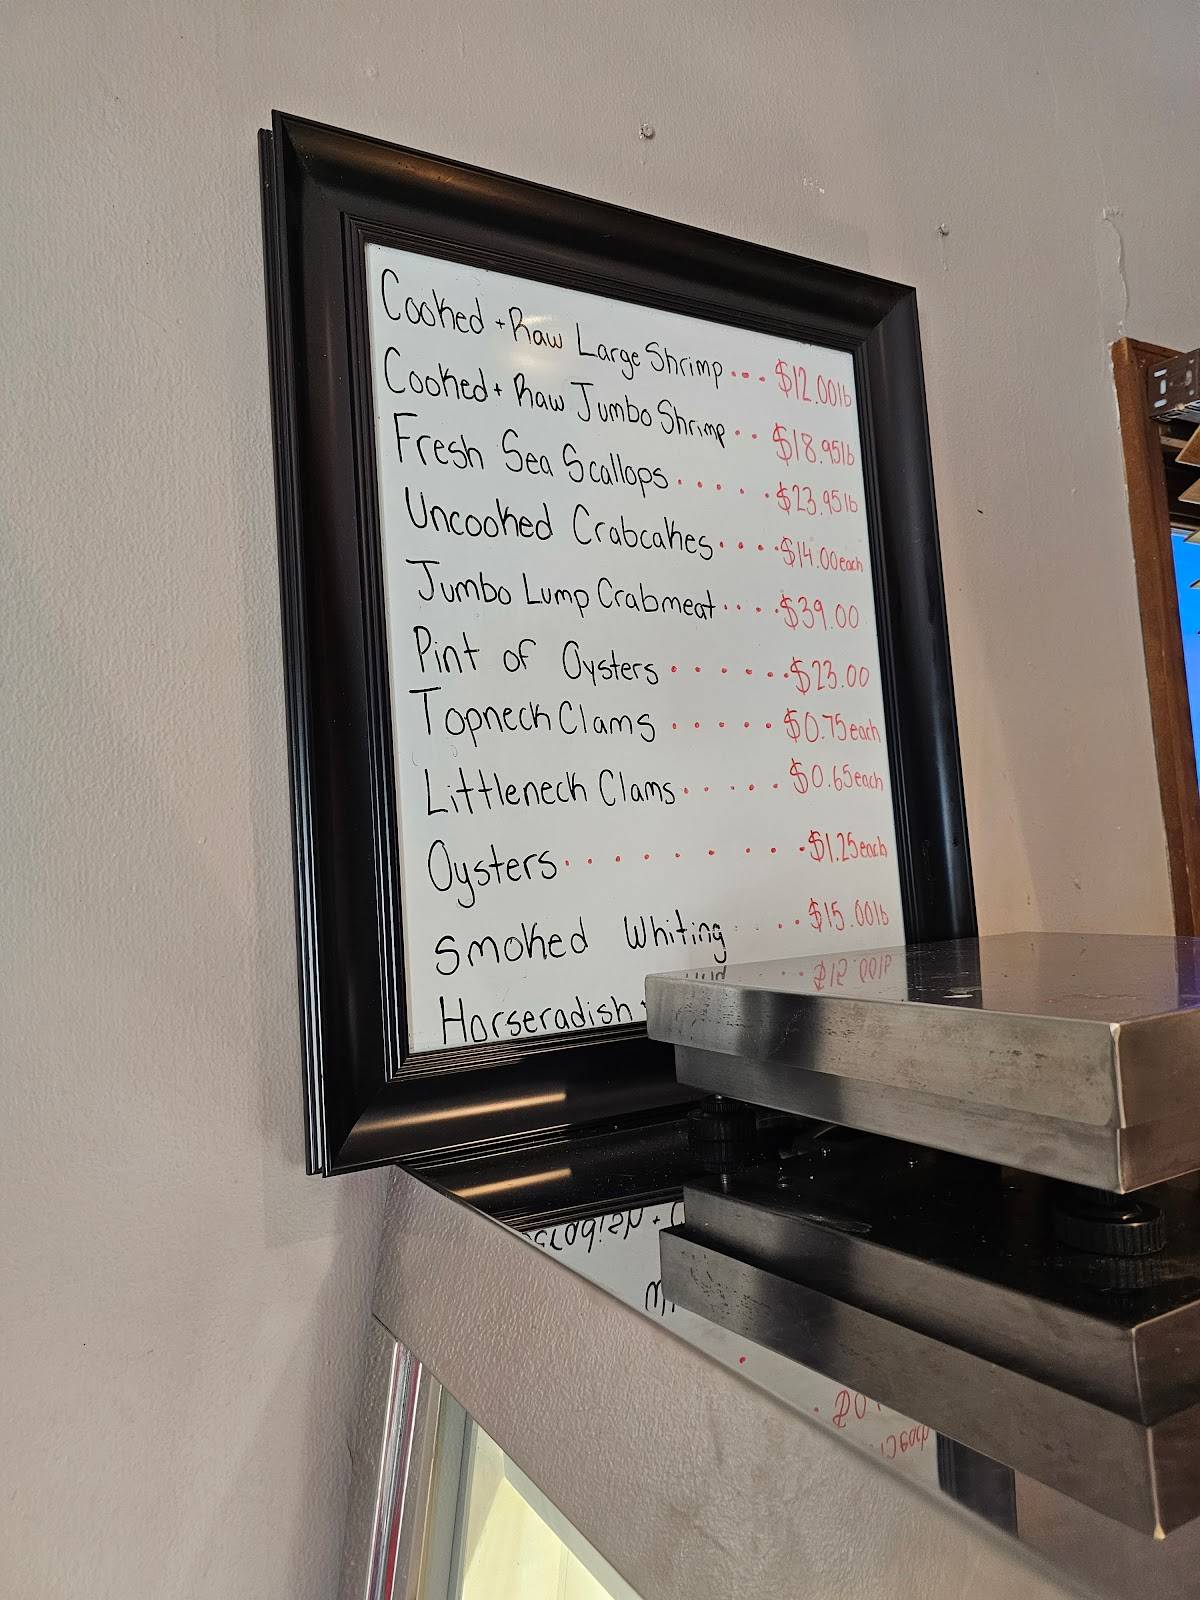 Cooked + Raw Large Shrimp... $12.00lb
Cooked + Raw Jumbo Shrimp.. $18.95lb
Fresh Sea Scallops..... $23.95lb
Uncooked Crabcakes....$14.00each
Jumbo Lump Crabmeat....$39.00
Pint of Oysters......$23.00
Topneck Clams.....$0.75each
Littleneck Clams.....$0.65each
Oysters.......$1.25each
Smoked Whiting....$15.00lb
Horseradish +